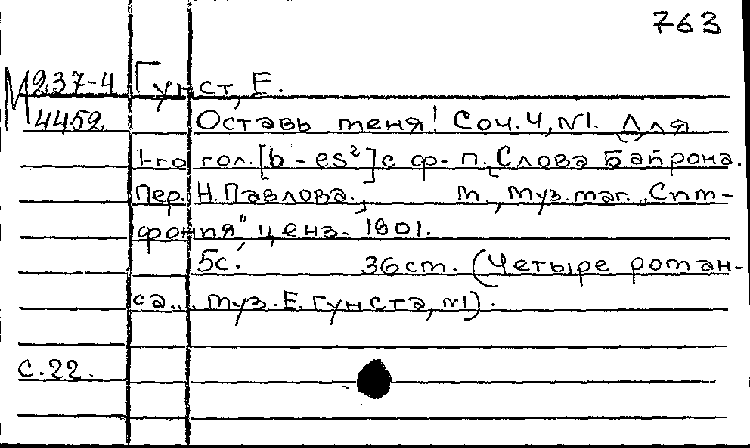 763
М 237-4 Гунст, Е.
4452 Оставь меня! Соч. 4, №1. Для
1-го гол. [b - es²] с ф-п. Слова Байрона.
Пер. Н. Павлова., М., муз. маг. „Сим-
фония", ценз. 1901.
5с. 36см. (Четыре роман-
са... муз. Е. Гунста, №1).
С.22.